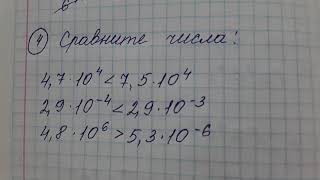 ④ Сравните числа:
4,7·10⁴ < 7,5·10⁴
2,9·10⁻⁴ < 2,9·10⁻³
4,8·10⁶ > 5,3·10⁻⁶